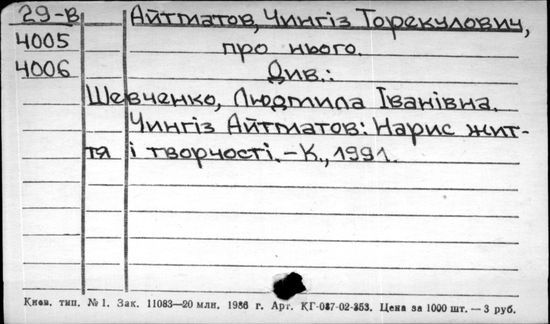 29-В Айтматов, Чингіз Торекулович,
4005 про нього.
4006 Див.:
Шевченко, Людмила Іванівна.
Чингіз Айтматов: Нарис жит-
тя і творчості. – К., 1991.
Киев. тип. № 1. Зак. 11083—20 млн. 1986 г. Арт. КГ-037-02-353. Цена за 1000 шт. — 3 руб.